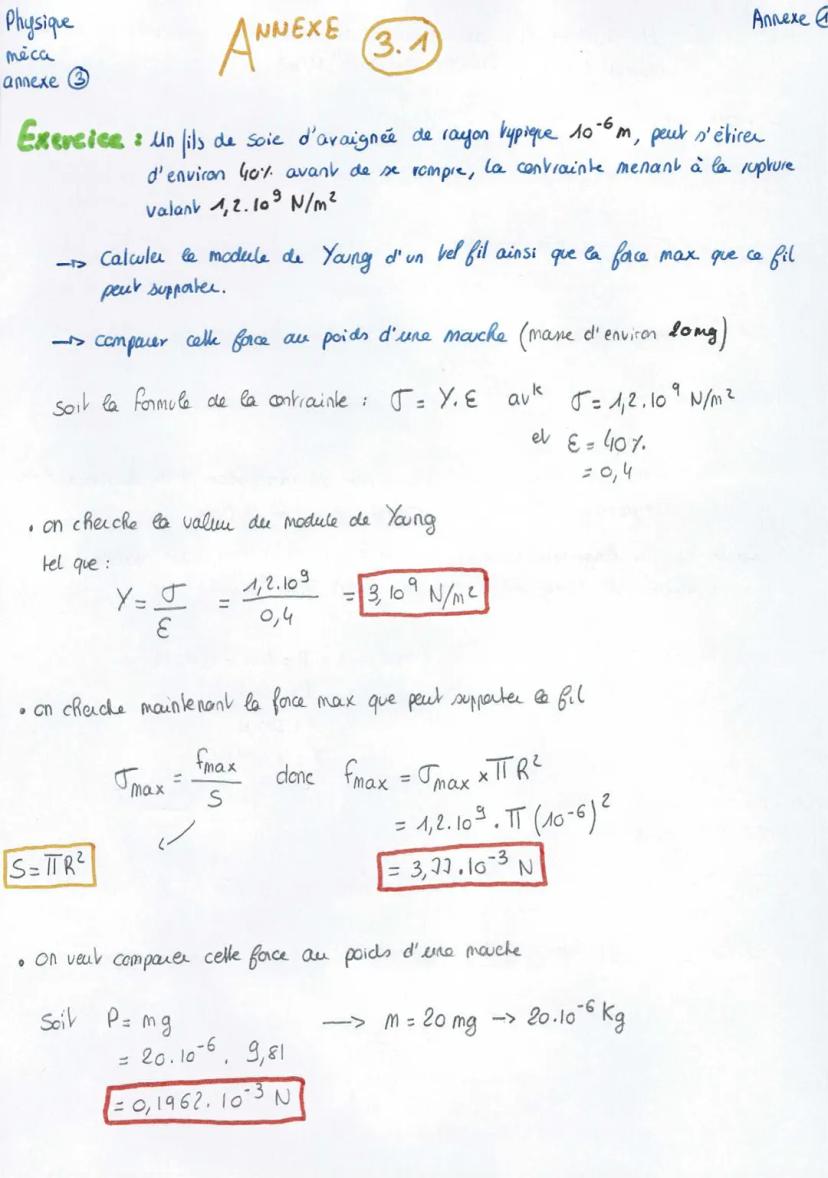 Physique
méca
annexe ③
ANNEXE 3.1
Annexe
Exercice : Un fils de soie d'araignée de rayon typique 10⁻⁶ m, peut s'étirer
d'environ 40% avant de se rompre, la contrainte menant à la rupture
valant 1,2.10⁹ N/m²
→ Calculer le module de Young d'un tel fil ainsi que la force max que ce fil
peut supporter.
→ comparer cette force au poids d'une mouche (masse d'environ 20mg)
Soit la formule de la contrainte : σ = Y.ε avk σ = 1,2.10⁹ N/m²
et ε = 40%
= 0,4
• on cherche la valeur du module de Young
tel que :
Y = σ/ε = 1,2.10⁹/0,4 = 3,10⁹ N/m²
• on cherche maintenant la force max que peut supporter le fil
σmax = fmax/S donc fmax = σmax × πR²
= 1,2.10⁹ . π (10⁻⁶)²
S = πR²
= 3,77.10⁻³ N
• On veut comparer cette force au poids d'une mouche
Soit P = mg → m = 20 mg → 20.10⁻⁶ Kg
= 20.10⁻⁶ . 9,81
= 0,1962.10⁻³ N